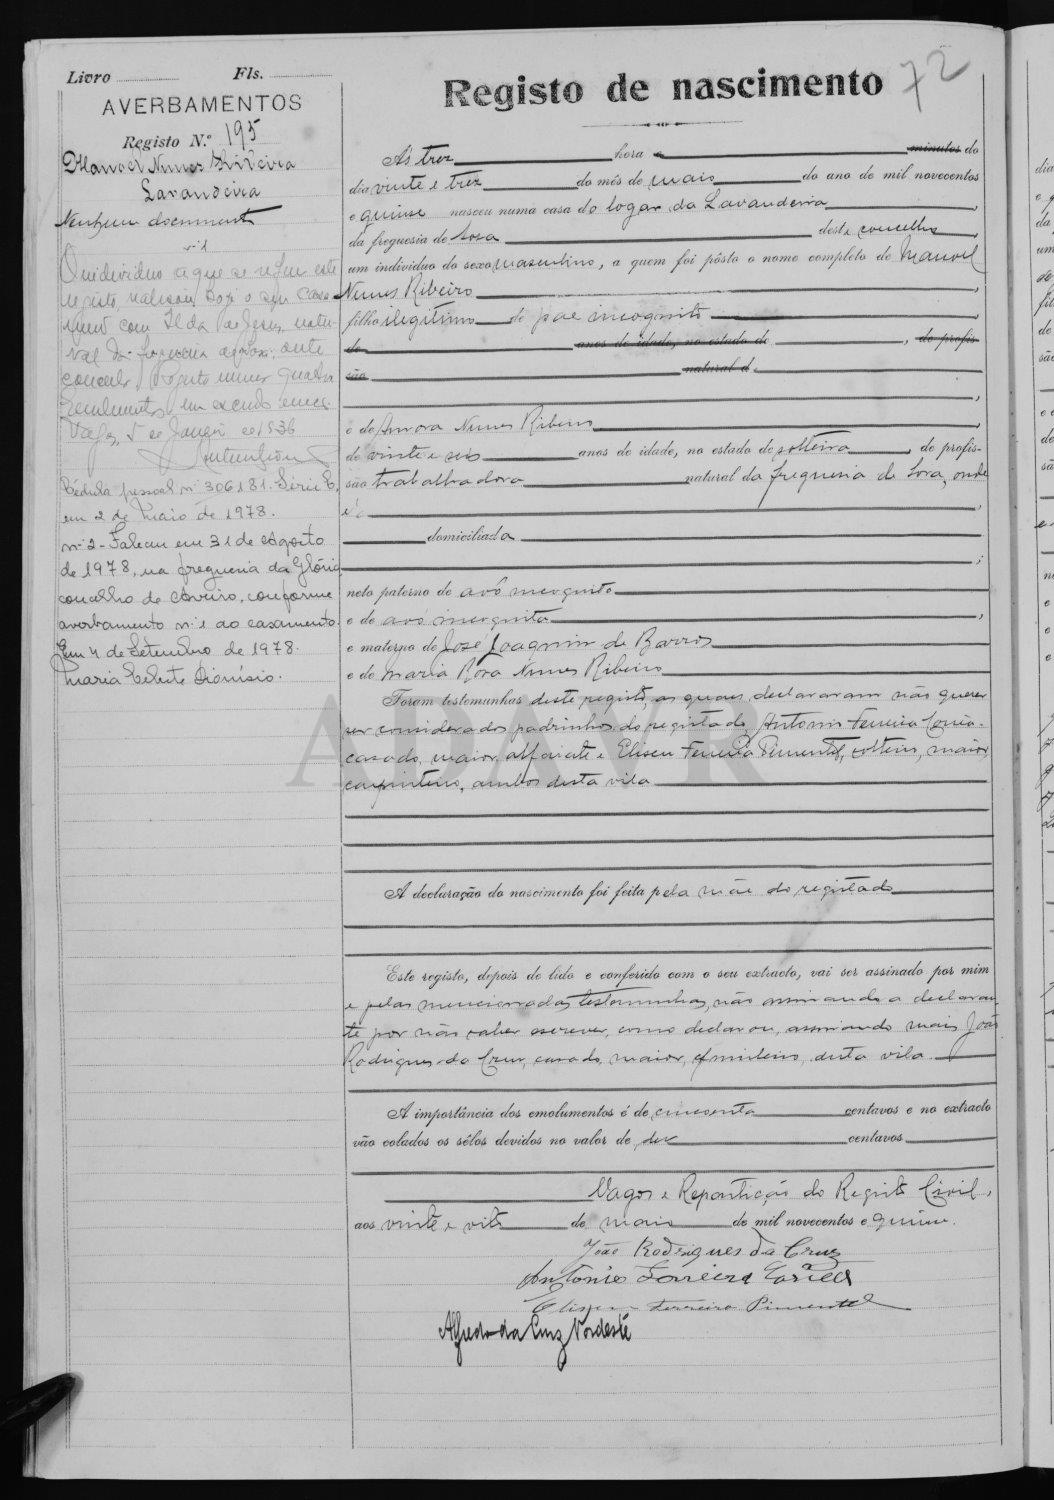 Livro Fls.
AVERBAMENTOS
Registo N.º 195
Manoel Nunes Ribeiro
Lavandeira
Nenhum documento
nº 1
O individuo a que se refere este
registo, realisou hoje o seu casa-
mento com Ilda de Jesus, natu-
ral da freguesia
concelho
emolumentos, em
Vagos, 5 de de 1936
Cédula pessoal nº 306181. Série E,
em 2 de Maio de 1978.
nº 2 - Faleceu em 31 de Agosto
de 1978, na freguesia da Glória
concelho de Aveiro, conforme
averbamento nº 1 ao casamento.
Em 4 de Setembro de 1978.
Maria Celeste Dionísio.
72
Registo de nascimento
Ás trez hora e minutos do
dia vinte e trez do mês de maio do ano de mil novecentos
e quinse nasceu numa casa do logar da Lavandeira,
da freguesia de Sosa deste concelho,
um individuo do sexo masculino, a quem foi pôsto o nome completo de Manoel
Nunes Ribeiro,
filho ilegitimo de pae incognito
de anos de idade, no estado de, de profis-
são natural d
,
e de Aurora Nunes Ribeiro,
de vinte e seis anos de idade, no estado de solteira, de profis-
são trabalhadora natural da freguesia de Sosa, onde
é,
domiciliada
;
neto paterno de avô incognito
e de avó incognita,
e materno de José Joaquim de Barros
e de Maria Rosa Nunes Ribeiro
Foram testemunhas deste registo, as quaes declararam não querer
ser considerados padrinhos do registado, Antonio Ferreira
casado, maior, alfaiate e Eliseu Ferreira Pimentel, solteiro, maior,
carpinteiro, ambos desta vila
ADAVR
A declaração do nascimento foi feita pela mãe do registado
Este registo, depois de lido e conferido com o seu extracto, vai ser assinado por mim
e pelas mencionadas testemunhas, não assinando a declaran-
te por não saber escrever, como declarou, assinando mais João
Rodrigues da Cruz, casado, maior, desta vila.
A importância dos emolumentos é de cincoenta centavos e no extracto
vão colados os sêlos devidos no valor de dez centavos
Vagos e Repartição do Registo Civil,
aos vinte e oito de maio de mil novecentos e quinse.
João Rodrigues da Cruz
Antonio Ferreira
Eliseu Ferreira Pimentel
Alfredo da Cruz Nordeste